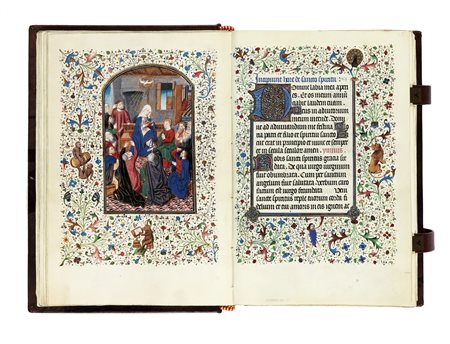 Incipiunt hore de sancto spiritu
Domine labia mea aperies
Et os meum annu
tiabit laudem tuam
Deus in adiutorium
meum intende. Domi
ne ad adiuvandum me festina
Gloria patri et filio et spiritui sancto
Sicut erat in principio et nunc et semper
et in secula seculorum amen.
Nobis sancti spiritus gratia sit
data. De qua virgo virginum
fuit obumbrata. Cum per sanctum
angelum fuit salutata. Verbum caro
factum est virgo fecundata
sancte spiritus reple tuorum corda fi
delium et tui amoris in eis ignem ac